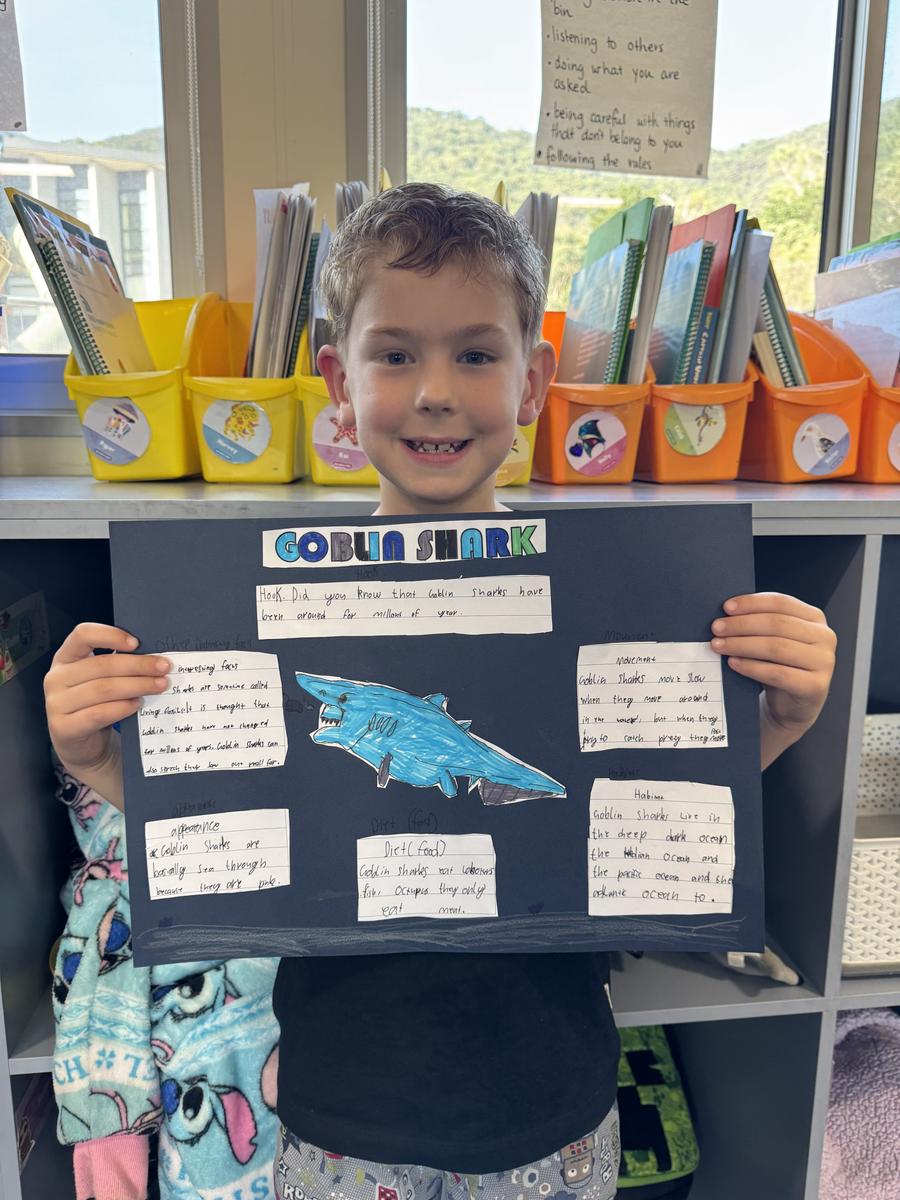 bin
• listening to others
• doing what you are
asked
• being careful with things
that don't belong to you
• following the rules
GOBLIN SHARK
Hook
Hook. Did you know that Goblin Sharks have
been around for millons of year.
interesting facts
Sharks are sometime called
Living fossils. It is thought that
Goblin sharks have not changed
for millons of years. Goblin sharks can
also strech ther Jaw out
Movement
Movement
Goblin sharks move slow
when they move around
in the water, but when they
try to catch prey they move
fast
appearance
Goblin Sharks are
basically see through
because they are pink.
Diet (food)
Diet (food)
Goblin sharks eat
fish, Octopus they only
eat meat.
Habitat
Goblin Sharks Live in
the deep dark ocean
the Indian ocean and
the pacific ocean and the
atlantic ocean to.
CH